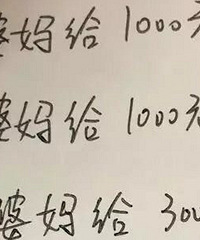 婆妈给 1000元
婆妈给 1000元
婆妈给 300